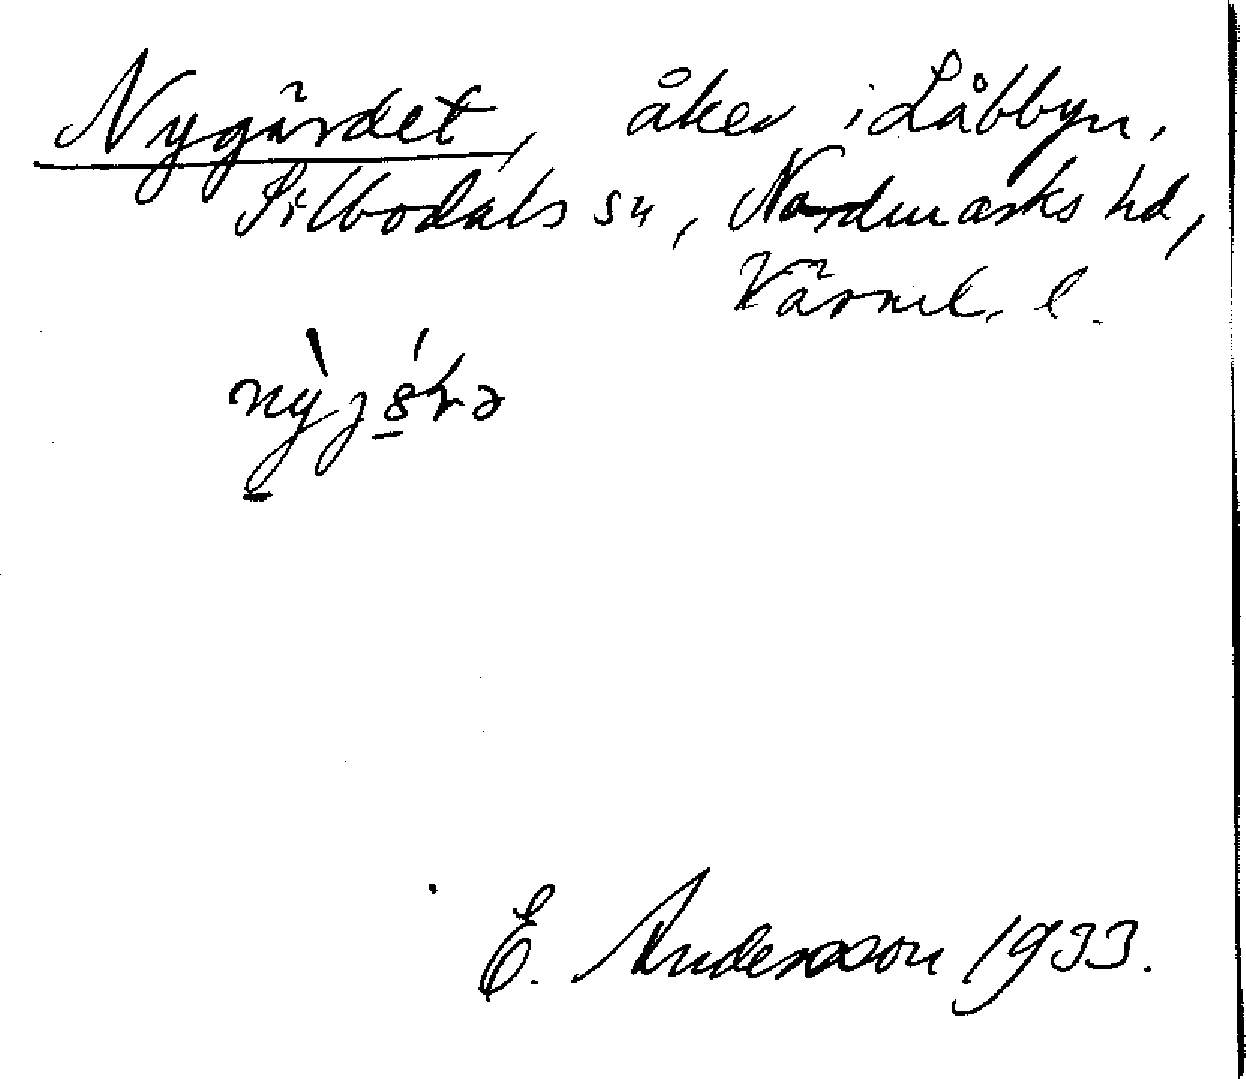 Nygärdet, åker i Låbbyn,
Silbodals sn, Nordmarks hd,
Värml. l.
E. Andersson 1933.